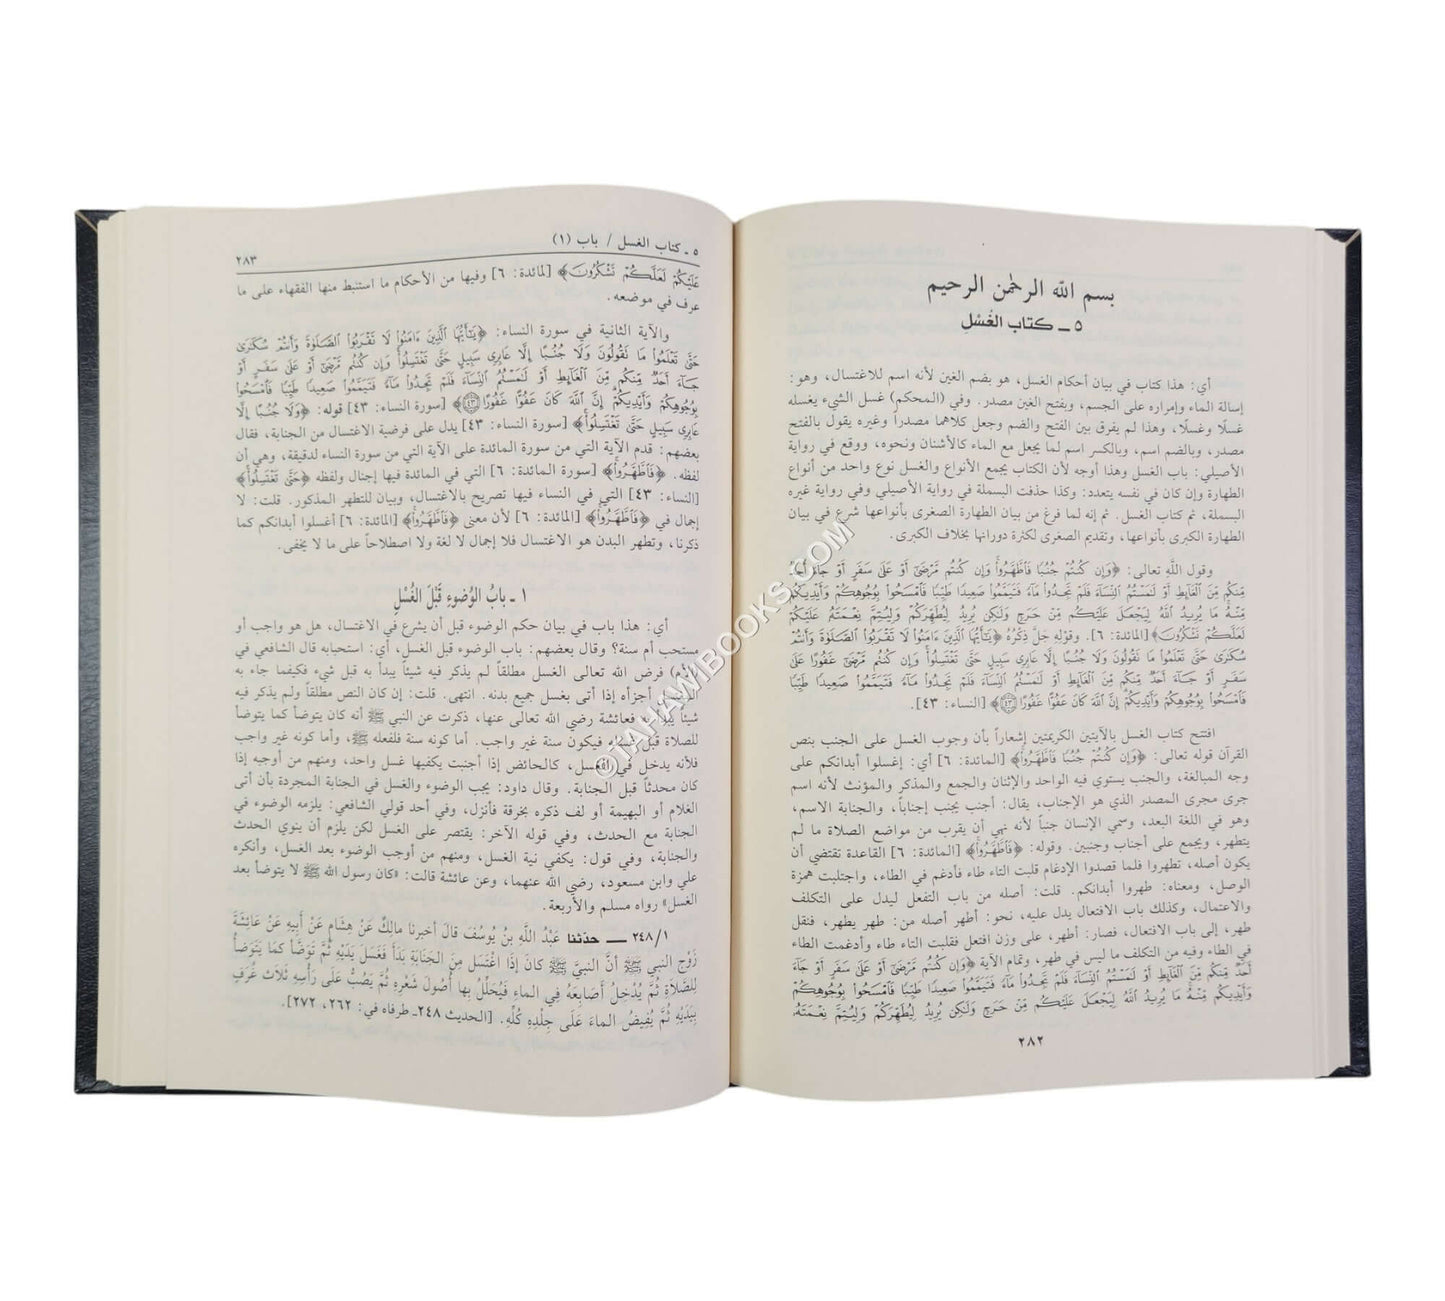 بسم الله الرحمن الرحيم
٥ ـ كتاب الغُسْلِ
أي: هذا كتاب في بيان أحكام الغسل، هو بضم الغين لأنه اسم للاغتسال، وهو:
إسالة الماء وإمراره على الجسم، وبفتح الغين مصدر. وفي (المحكم) غسل الشيء يغسله
غسلًا وغسلًا، وهذا لم يفرق بين الفتح والضم وجعل كلاهما مصدراً وغيره يقول بالفتح
مصدر، وبالضم اسم، وبالكسر اسم لما يجعل مع الماء كالأشنان ونحوه، ووقع في رواية
الأصيلي: باب الغسل وهذا أوجه لأن الكتاب يجمع الأنواع والغسل نوع واحد من أنواع
الطهارة وإن كان في نفسه يتعدد: وكذا حذفت البسملة في رواية الأصيلي وفي رواية غيره
البسملة، ثم كتاب الغسل. ثم إنه لما فرغ من بيان الطهارة الصغرى بأنواعها شرع في بيان
الطهارة الكبرى بأنواعها، وتقديم الصغرى لكثرة دورانها بخلاف الكبرى.
وقول اللَّهِ تعالى: ﴿وَإِن كُنتُمْ جُنُبًا فَاطَّهَّرُوا وَإِن كُنتُم مَّرْضَىٰ أَوْ عَلَىٰ سَفَرٍ أَوْ جَاءَ أَحَدٌ
مِّنكُم مِّنَ الْغَائِطِ أَوْ لَامَسْتُمُ النِّسَاءَ فَلَمْ تَجِدُوا مَاءً فَتَيَمَّمُوا صَعِيدًا طَيِّبًا فَامْسَحُوا بِوُجُوهِكُمْ وَأَيْدِيكُم
مِّنْهُ مَا يُرِيدُ اللَّهُ لِيَجْعَلَ عَلَيْكُم مِّنْ حَرَجٍ وَلَٰكِن يُرِيدُ لِيُطَهِّرَكُمْ وَلِيُتِمَّ نِعْمَتَهُ عَلَيْكُمْ
لَعَلَّكُمْ تَشْكُرُونَ﴾ [المائدة: ٦]. وقوْلِهِ جَلّ ذِكْرُهُ ﴿يَا أَيُّهَا الَّذِينَ آمَنُوا لَا تَقْرَبُوا الصَّلَاةَ وَأَنتُمْ
سُكَارَىٰ حَتَّىٰ تَعْلَمُوا مَا تَقُولُونَ وَلَا جُنُبًا إِلَّا عَابِرِي سَبِيلٍ حَتَّىٰ تَغْتَسِلُوا وَإِن كُنتُم مَّرْضَىٰ أَوْ عَلَىٰ
سَفَرٍ أَوْ جَاءَ أَحَدٌ مِّنكُم مِّنَ الْغَائِطِ أَوْ لَامَسْتُمُ النِّسَاءَ فَلَمْ تَجِدُوا مَاءً فَتَيَمَّمُوا صَعِيدًا طَيِّبًا
فَامْسَحُوا بِوُجُوهِكُمْ وَأَيْدِيكُمْ إِنَّ اللَّهَ كَانَ عَفُوًّا غَفُورًا ٤٣﴾ [النساء: ٤٣].
افتتح كتاب الغسل بالآيتين الكريمتين إشعاراً بأن وجوب الغسل على الجنب بنص
القرآن قوله تعالى: ﴿وَإِن كُنتُمْ جُنُبًا فَاطَّهَّرُوا﴾ [المائدة: ٦] أي: إغسلوا أبدانكم على
وجه المبالغة، والجنب يستوي فيه الواحد والإثنان والجمع والمذكر والمؤنث لأنه اسم
جرى مجرى المصدر الذي هو الإجناب، يقال: أجنب يجنب إجناباً، والجنابة الاسم،
وهو في اللغة البعد، وسمي الإنسان جنباً لأنه نهي أن يقرب من مواضع الصلاة ما لم
يتطهر، ويجمع على أجناب وجنبين. وقوله: ﴿فَاطَّهَّرُوا﴾ [المائدة: ٦] القاعدة تقتضي أن
يكون أصله، تطهروا فلما قصدوا الإدغام قلبت التاء طاء فأدغم في الطاء، واجتلبت همزة
الوصل، ومعناه: طهروا أبدانكم. قلت: أصله من باب التفعل ليدل على التكلف
والاعتمال، وكذلك باب الافتعال يدل عليه، نحو: أطهر أصله من: طهر يطهر، فنقل
طهر، إلى باب الافتعال، فصار: أطهر، على وزن افتعل فقلبت التاء طاء وأدغمت الطاء
في الطاء وفيه من التكلف ما ليس في طهر، وتمام الآية ﴿وَإِن كُنتُم مَّرْضَىٰ أَوْ عَلَىٰ سَفَرٍ أَوْ جَاءَ
أَحَدٌ مِّنكُم مِّنَ الْغَائِطِ أَوْ لَامَسْتُمُ النِّسَاءَ فَلَمْ تَجِدُوا مَاءً فَتَيَمَّمُوا صَعِيدًا طَيِّبًا فَامْسَحُوا بِوُجُوهِكُمْ
وَأَيْدِيكُم مِّنْهُ مَا يُرِيدُ اللَّهُ لِيَجْعَلَ عَلَيْكُم مِّنْ حَرَجٍ وَلَٰكِن يُرِيدُ لِيُطَهِّرَكُمْ وَلِيُتِمَّ نِعْمَتَهُ
٢٨٢
٥ ـ كتاب الغسل / باب (١)
٢٨٣
عَلَيْكُمْ لَعَلَّكُمْ تَشْكُرُونَ﴾ [لمائدة: ٦] وفيها من الأحكام ما استنبط منها الفقهاء على ما
عرف في موضعه.
والآية الثانية في سورة النساء: ﴿يَا أَيُّهَا الَّذِينَ آمَنُوا لَا تَقْرَبُوا الصَّلَاةَ وَأَنتُمْ سُكَارَىٰ
حَتَّىٰ تَعْلَمُوا مَا تَقُولُونَ وَلَا جُنُبًا إِلَّا عَابِرِي سَبِيلٍ حَتَّىٰ تَغْتَسِلُوا وَإِن كُنتُم مَّرْضَىٰ أَوْ عَلَىٰ سَفَرٍ أَوْ
جَاءَ أَحَدٌ مِّنكُم مِّنَ الْغَائِطِ أَوْ لَامَسْتُمُ النِّسَاءَ فَلَمْ تَجِدُوا مَاءً فَتَيَمَّمُوا صَعِيدًا طَيِّبًا فَامْسَحُوا
بِوُجُوهِكُمْ وَأَيْدِيكُمْ إِنَّ اللَّهَ كَانَ عَفُوًّا غَفُورًا ٤٣﴾ [سورة النساء: ٤٣] قوله: ﴿وَلَا جُنُبًا إِلَّا
عَابِرِي سَبِيلٍ حَتَّىٰ تَغْتَسِلُوا﴾ [سورة النساء: ٤٣] يدل على فرضية الاغتسال من الجنابة، فقال
بعضهم: قدم الآية التي من سورة المائدة على الآية التي من سورة النساء لدقيقة، وهي أن
لفظه. ﴿فَاطَّهَّرُوا﴾ [سورة المائدة: ٦] التي في المائدة فيها إجنال ولفظه ﴿حَتَّىٰ تَغْتَسِلُوا﴾
[النساء: ٤٣] التي في النساء فيها تصريح بالاغتسال، وبيان للتطهر المذكور. قلت: لا
إجمال في ﴿فَاطَّهَّرُوا﴾ [المائدة: ٦] لأن معنى ﴿فَاطَّهَّرُوا﴾ [المائدة: ٦] أغسلوا أبدانكم كما
ذكرنا، وتطهر البدن هو الاغتسال فلا إجمال لا لغة ولا اصطلاحاً على ما لا يخفى.
١ ـ بابُ الوُضوءِ قَبْلَ الغُسْلِ
أي: هذا باب في بيان حكم الوضوء قبل أن يشرع في الاغتسال، هل هو واجب أو
مستحب أم سنة؟ وقال بعضهم: باب الوضوء قبل الغسل، أي: استحبابه قال الشافعي في
(الأم) فرض الله تعالى الغسل مطلقاً لم يذكر فيه شيئاً يبدأ به قبل شيء فكيفما جاء به
المغتسل أجزأه إذا أتى بغسل جميع بدنه. انتهى. قلت: إن كان النص مطلقاً ولم يذكر فيه
شيئاً يبدأ به فعائشة رضي الله تعالى عنها، ذكرت عن النبي ﷺ أنه كان يتوضأ كما يتوضأ
للصلاة قبل غسله فيكون سنة غير واجب. أما كونه سنة فلفعله ﷺ، وأما كونه غير واجب
فلأنه يدخل في الغسل، كالحائض إذا أجنبت يكفيها غسل واحد، ومنهم من أوجبه إذا
كان محدثاً قبل الجنابة. وقال داود: يجب الوضوء والغسل في الجنابة المجردة بأن أتى
الغلام أو البهيمة أو لف ذكره بخرقة فأنزل، وفي أحد قولي الشافعي: يلزمه الوضوء في
الجنابة مع الحدث، وفي قوله الآخر: يقتصر على الغسل لكن يلزم أن ينوي الحدث
والجنابة، وفي قول: يكفي نية الغسل، ومنهم من أوجب الوضوء بعد الغسل، وأنكره
علي وابن مسعود، رضي الله عنهما، وعن عائشة قالت: «كان رسول الله ﷺ لا يتوضأ بعد
الغسل» رواه مسلم والأربعة.
٢٤٨/١ ـــ حدّثنا عَبْدُ اللَّهِ بنُ يُوسُفَ قالَ أخبرنا مالِكٌ عَنْ هِشَامٍ عَنْ أبِيهِ عَنْ عَائِشَةَ
زَوْجِ النبي ﷺ أنَّ النبيَّ ﷺ كانَ إذَا اغْتَسَلَ مِنَ الجَنَابَةِ بَدَأَ فَغَسَلَ يَدَيْهِ ثُمَّ تَوَضَّأ كما يَتَوَضأُ
لِلصَّلاةِ ثُمَّ يُدْخِلُ أصَابِعَهُ فِي الماءِ فَيُخَلِّلُ بها أُصُولَ شَعْرِهِ ثُمَّ يَصُبُّ عَلَى رَأسِهِ ثَلاثَ غُرَفٍ
بِيَدَيْهِ ثُمَّ يُفِيضُ الماءَ عَلَى جِلْدِهِ كُلِّهِ. [الحديث ٢٤٨ـ طرفاه في: ٢٦٢، ٢٧٢].
©TAHAWIBOOKS.COM